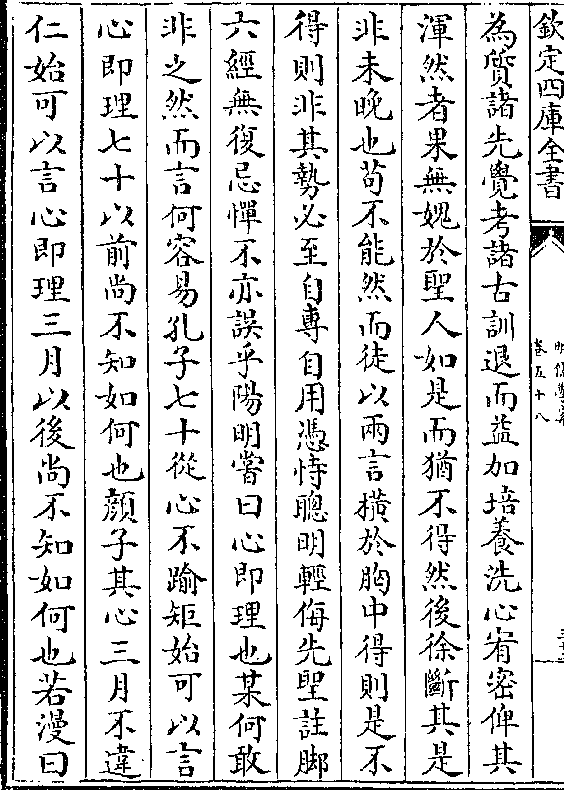 欽定四庫全書
明儒學案
卷五十八
為質諸先覺考諸古訓退而益加培養洗心宥密俾其
渾然者果無媿於聖人如是而猶不得然後徐斷其是
非未晚也苟不能然而徒以兩言橫於胸中得則是不
得則非其勢必至自專自用憑恃聰明輕侮先聖註脚
六經無復忌憚不亦誤乎陽明嘗曰心即理也某何敢
非之然而言何容易孔子七十從心不踰矩始可以言
心即理七十以前尚不知如何也顔子其心三月不違
仁始可以言心即理三月以後尚不知如何也若漫曰